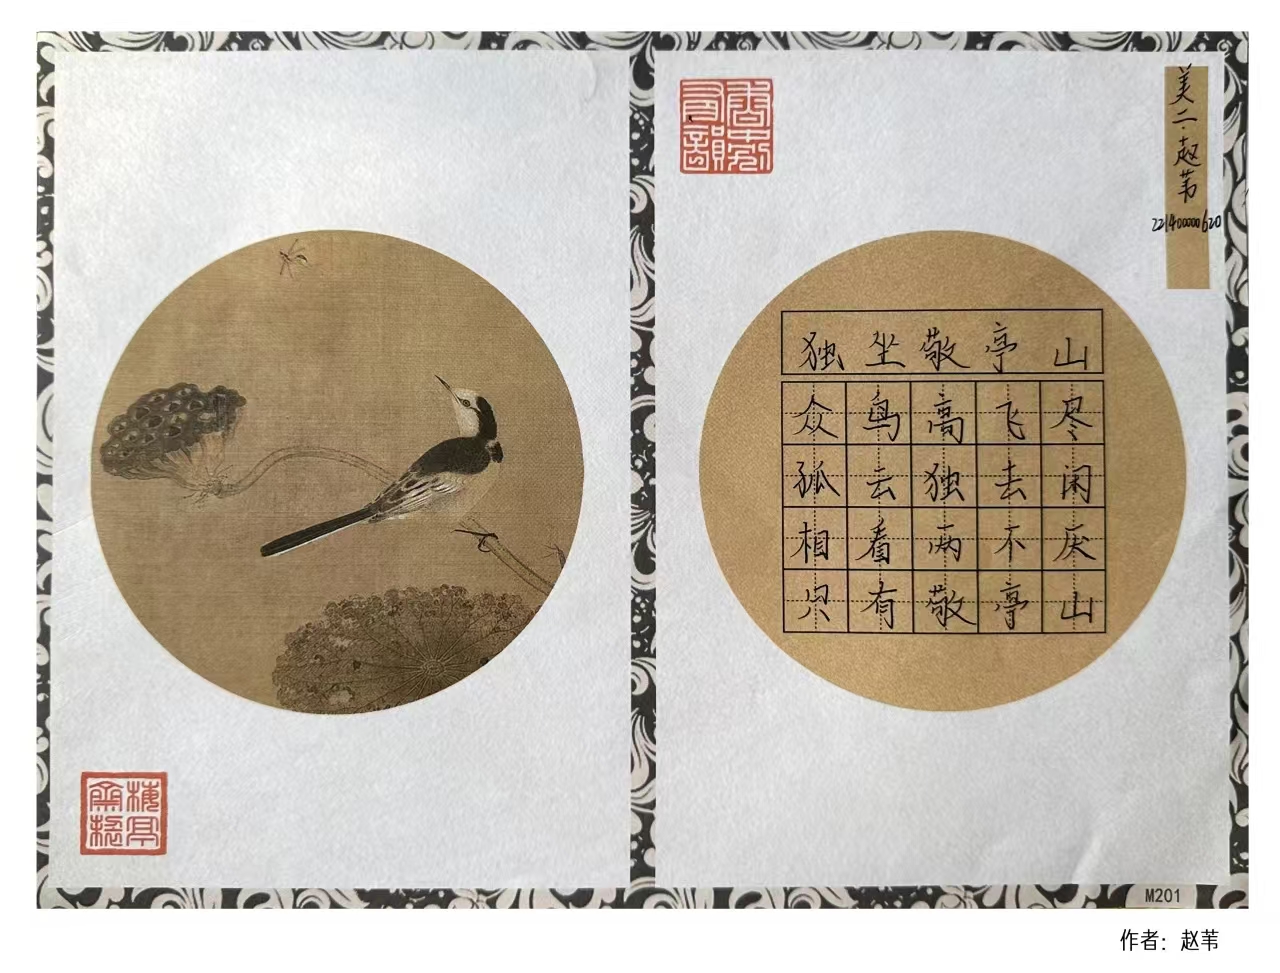 美二·赵苇
221400000620
独坐敬亭山
众鸟高飞尽
孤云独去闲
相看两不厌
只有敬亭山
M201
作者：赵苇